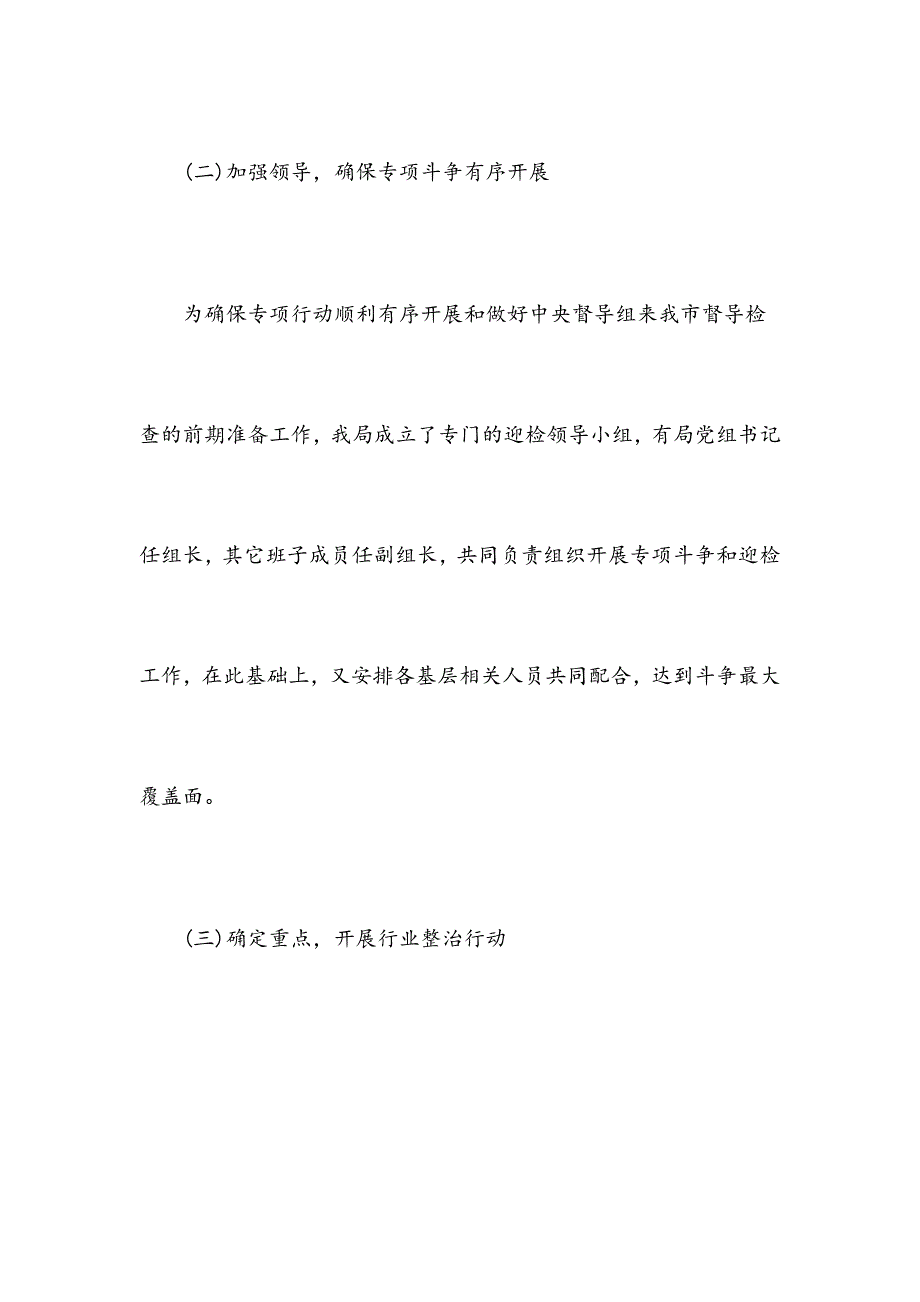 (二)加强领导，确保专项斗争有序开展
为确保专项行动顺利有序开展和做好中央督导组来我市督导检
查的前期准备工作，我局成立了专门的迎检领导小组，有局党组书记
任组长，其它班子成员任副组长，共同负责组织开展专项斗争和迎检
工作，在此基础上，又安排各基层相关人员共同配合，达到斗争最大
覆盖面。
(三)确定重点，开展行业整治行动